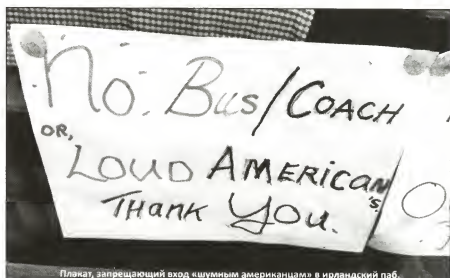 No. Bus/COACH
OR,
LOUD AMERICAN's
THANK YOU.
Плакат, запрещающий вход «шумным американцам» в ирландский паб.